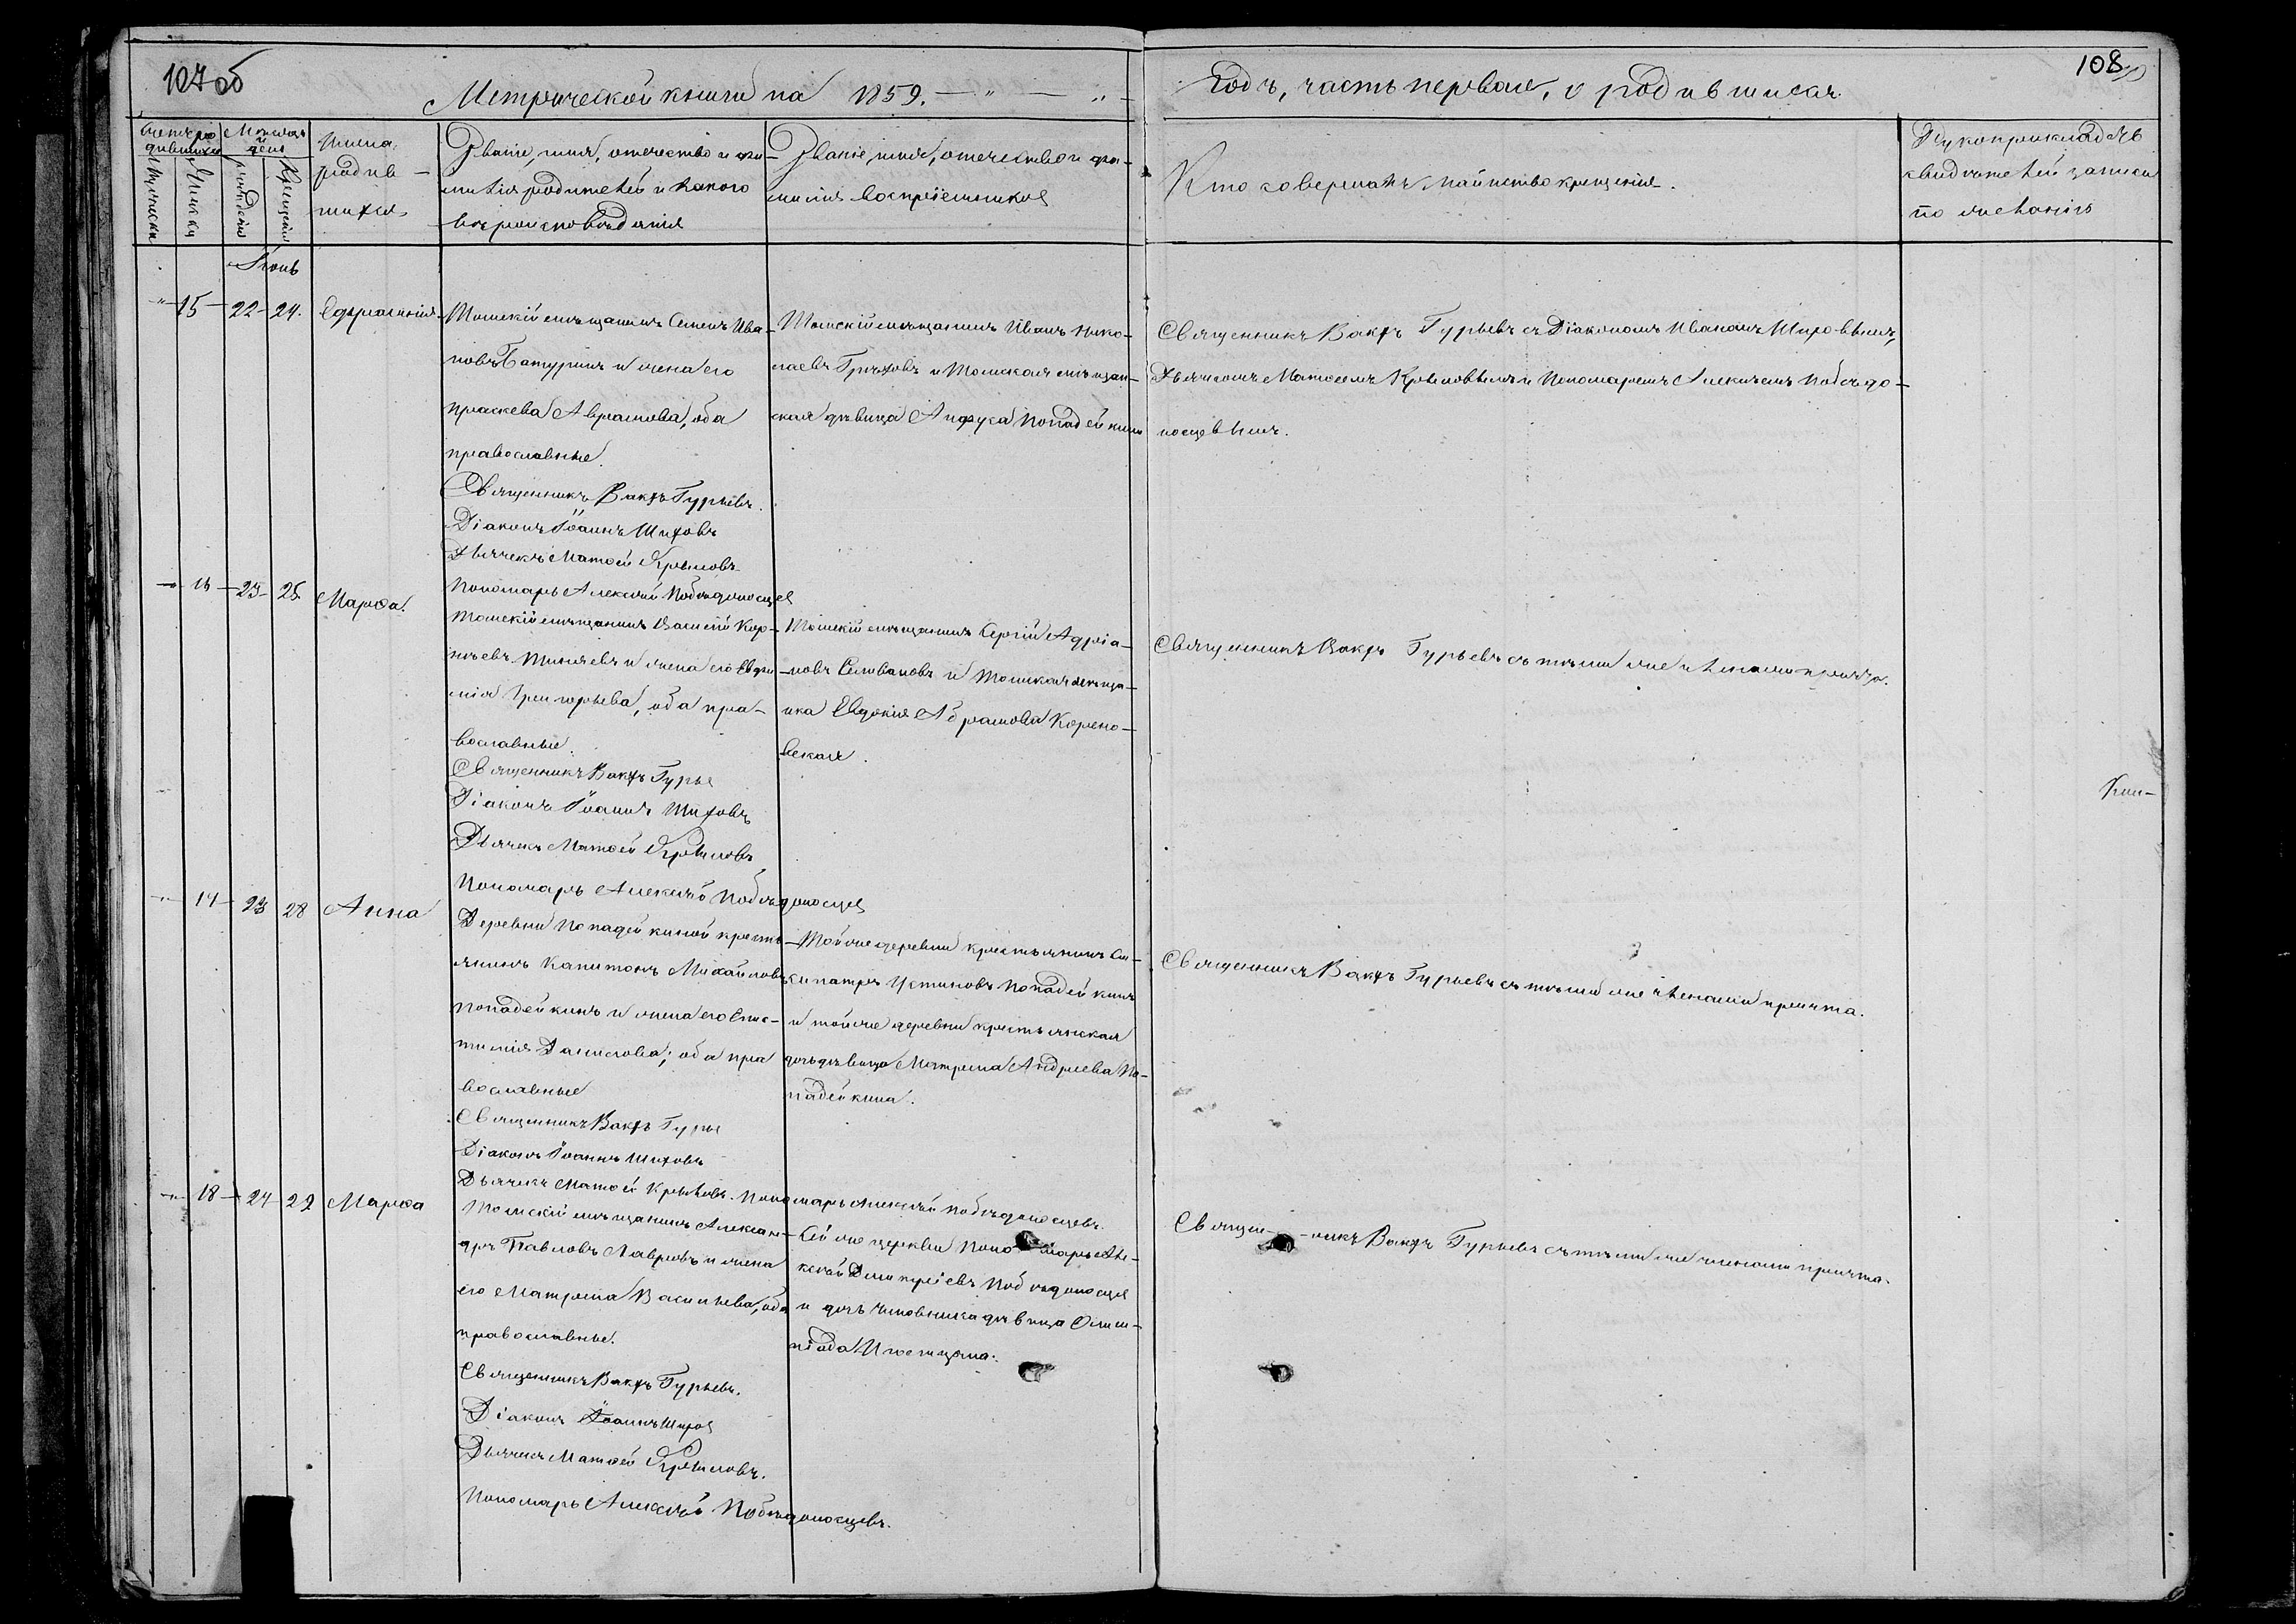 107 об
108
Метрической книги на 1859.
Годъ, часть первая, о родившихся.
Счетъ родившихся
Мужеска
Женска
Мѣсяцъ и день
рожденія
Крещенія
Имена родившихся
Званіе, имя, отечество и фамилія родителей и какого вѣроисповѣданія
Званіе, имя, отечество и фамилія воспріемниковъ
Кто совершалъ таинство крещенія.
Рукоприкладство свидѣтелей записи по желанію
Іюнь
15 22 24. Ефрасинія
Томскій мѣщанинъ Семенъ Ива-
новъ Батуринъ и жена его
Праскева Аврамова, оба
православные.
Священникъ Вакхъ Гурьевъ.
Діаконъ Іоаннъ Шиховъ
Дьячекъ Матѳей Крыловъ
Пономарь Алексѣй Побѣдоносцев
Томскій мѣщанинъ Иванъ Нико-
лаевъ Грѣховъ и Томская мѣщан-
ская дѣвица Анфуса Попадейкина
Священникъ Вакхъ Гурьевъ съ Діакономъ Иваномъ Шиховымъ,
Дьячкомъ Матѳеемъ Крыловымъ и Пономаремъ Алексѣемъ Побѣдо-
носцевымъ.
16 23 25. Марѳа.
Томскій мѣщанинъ Василій Кор-
нѣевъ и жена его Евфи-
мія Григорьева, оба пра-
вославные.
Священникъ Вакхъ Гурье
Діаконъ Іоаннъ Шиховъ
Дьячекъ Матѳей Крыловъ
Пономарь Алексѣй Побѣдоносцев
Томскій мѣщанинъ Сергій Адріа-
новъ Селивановъ и Томская мѣща-
нка Евдокія Абрамова Корено-
вская.
Священникъ Вакхъ Гурьевъ съ тѣми же членами причта.
Кни-
17 23 28 Анна
Деревни Попадейкиной кресть-
янинъ Капитонъ Михайловъ
Попадейкинъ и жена его Епис-
тимія Данилова; оба пра
вославные
Священникъ Вакхъ Гурье
Діаконъ Іоаннъ Шиховъ
Дьячекъ Матѳей Крыловъ. Пономарь Алексѣй Побѣдоносцевъ.
Той же деревни крестьянинъ Си-
сипатръ Устиновъ Попадейкинъ
и той же деревни крестьянская
дочь дѣвица Матрена Андреева По-
падейкина.
Священникъ Вакхъ Гурьевъ съ тѣми же членами причта.
18 24 29 Марѳа
Томскій мѣщанинъ Алексан-
дръ Павловъ Лавровъ и жена
его Матрена Васильева, оба
православные.
Священникъ Вакхъ Гурьевъ.
Діаконъ Іоаннъ Шихов
Дьячекъ Матѳей Крыловъ.
Пономарь Алексѣй Побѣдоносцевъ.
Сей же церкви Пономарь Але-
ксѣй Димитріевъ Побѣдоносцев
и дочь чиновника дѣвица Олим-
піада
Священникъ Вакхъ Гурьевъ съ тѣми же членами причта.